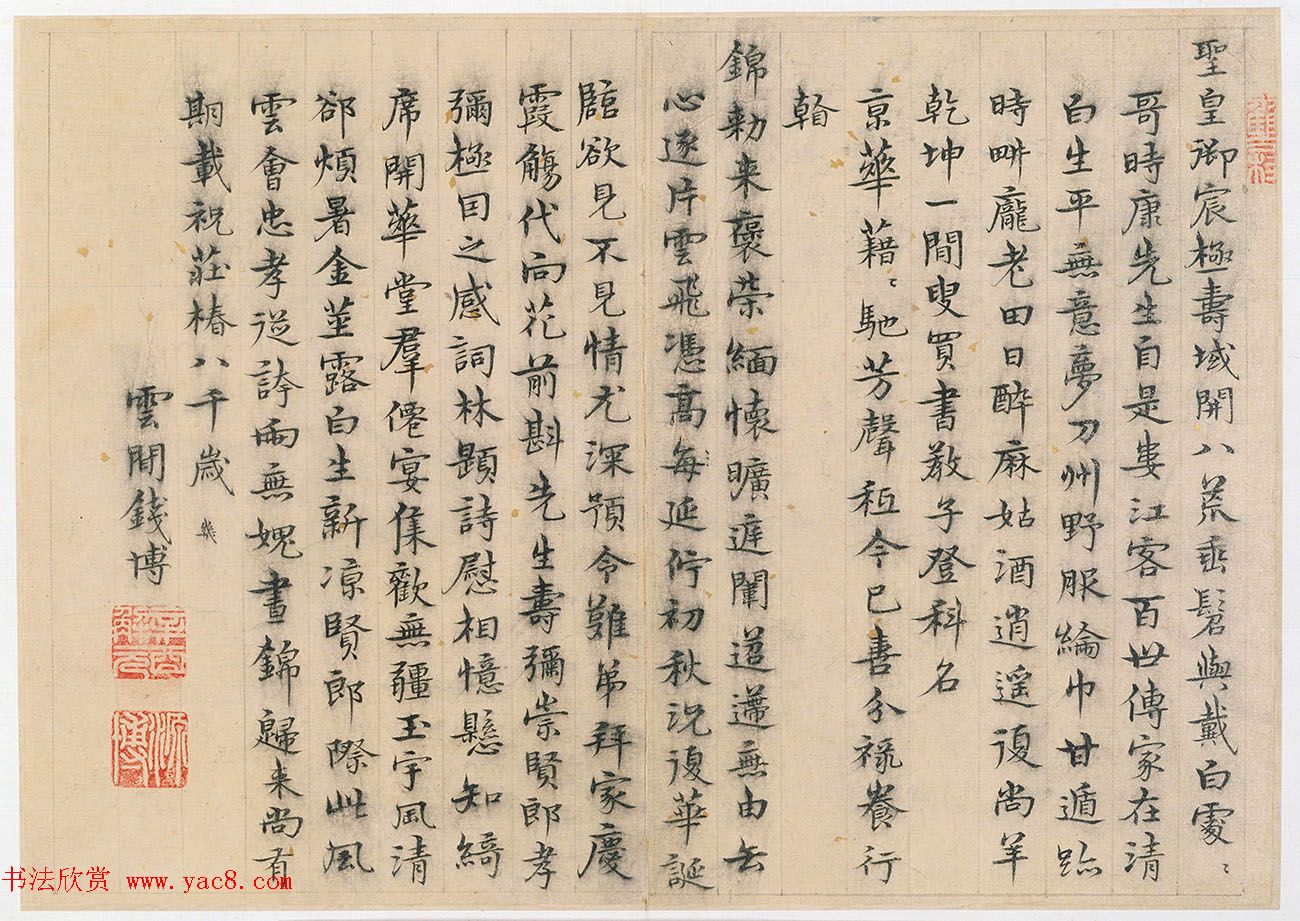 聖皇御宸極壽域開八荒垂髫與戴白處〻
哥時康先生自是婁江客百世傳家在清
白生平無意夢刀州野服綸巾甘遁跡
時畊龐老田日醉麻姑酒逍遥復尚羊
乾坤一閒叟買書教子登科名
京華藉〻馳芳聲秪今已喜分祿養行
錦勅来褒荣緬懷曠遅闈迢遰無由去
心逐片雲飛憑髙每延佇初秋況復華誕
臨欲見不見情尤深預令難弟拜家慶
霞觴代向花前斟先生壽彌崇賢郎孝
彌極因之感詞林題詩慰相憶懸知綺
席開華堂羣僊宴集歡無疆玉宇風清
郤煩暑金莖露白生新凉賢郎際此風
雲會忠孝從誇兩無媿晝錦歸来尚有
期載祝莊椿八千嵗
雲間錢博
书法欣赏 www.yac8.com